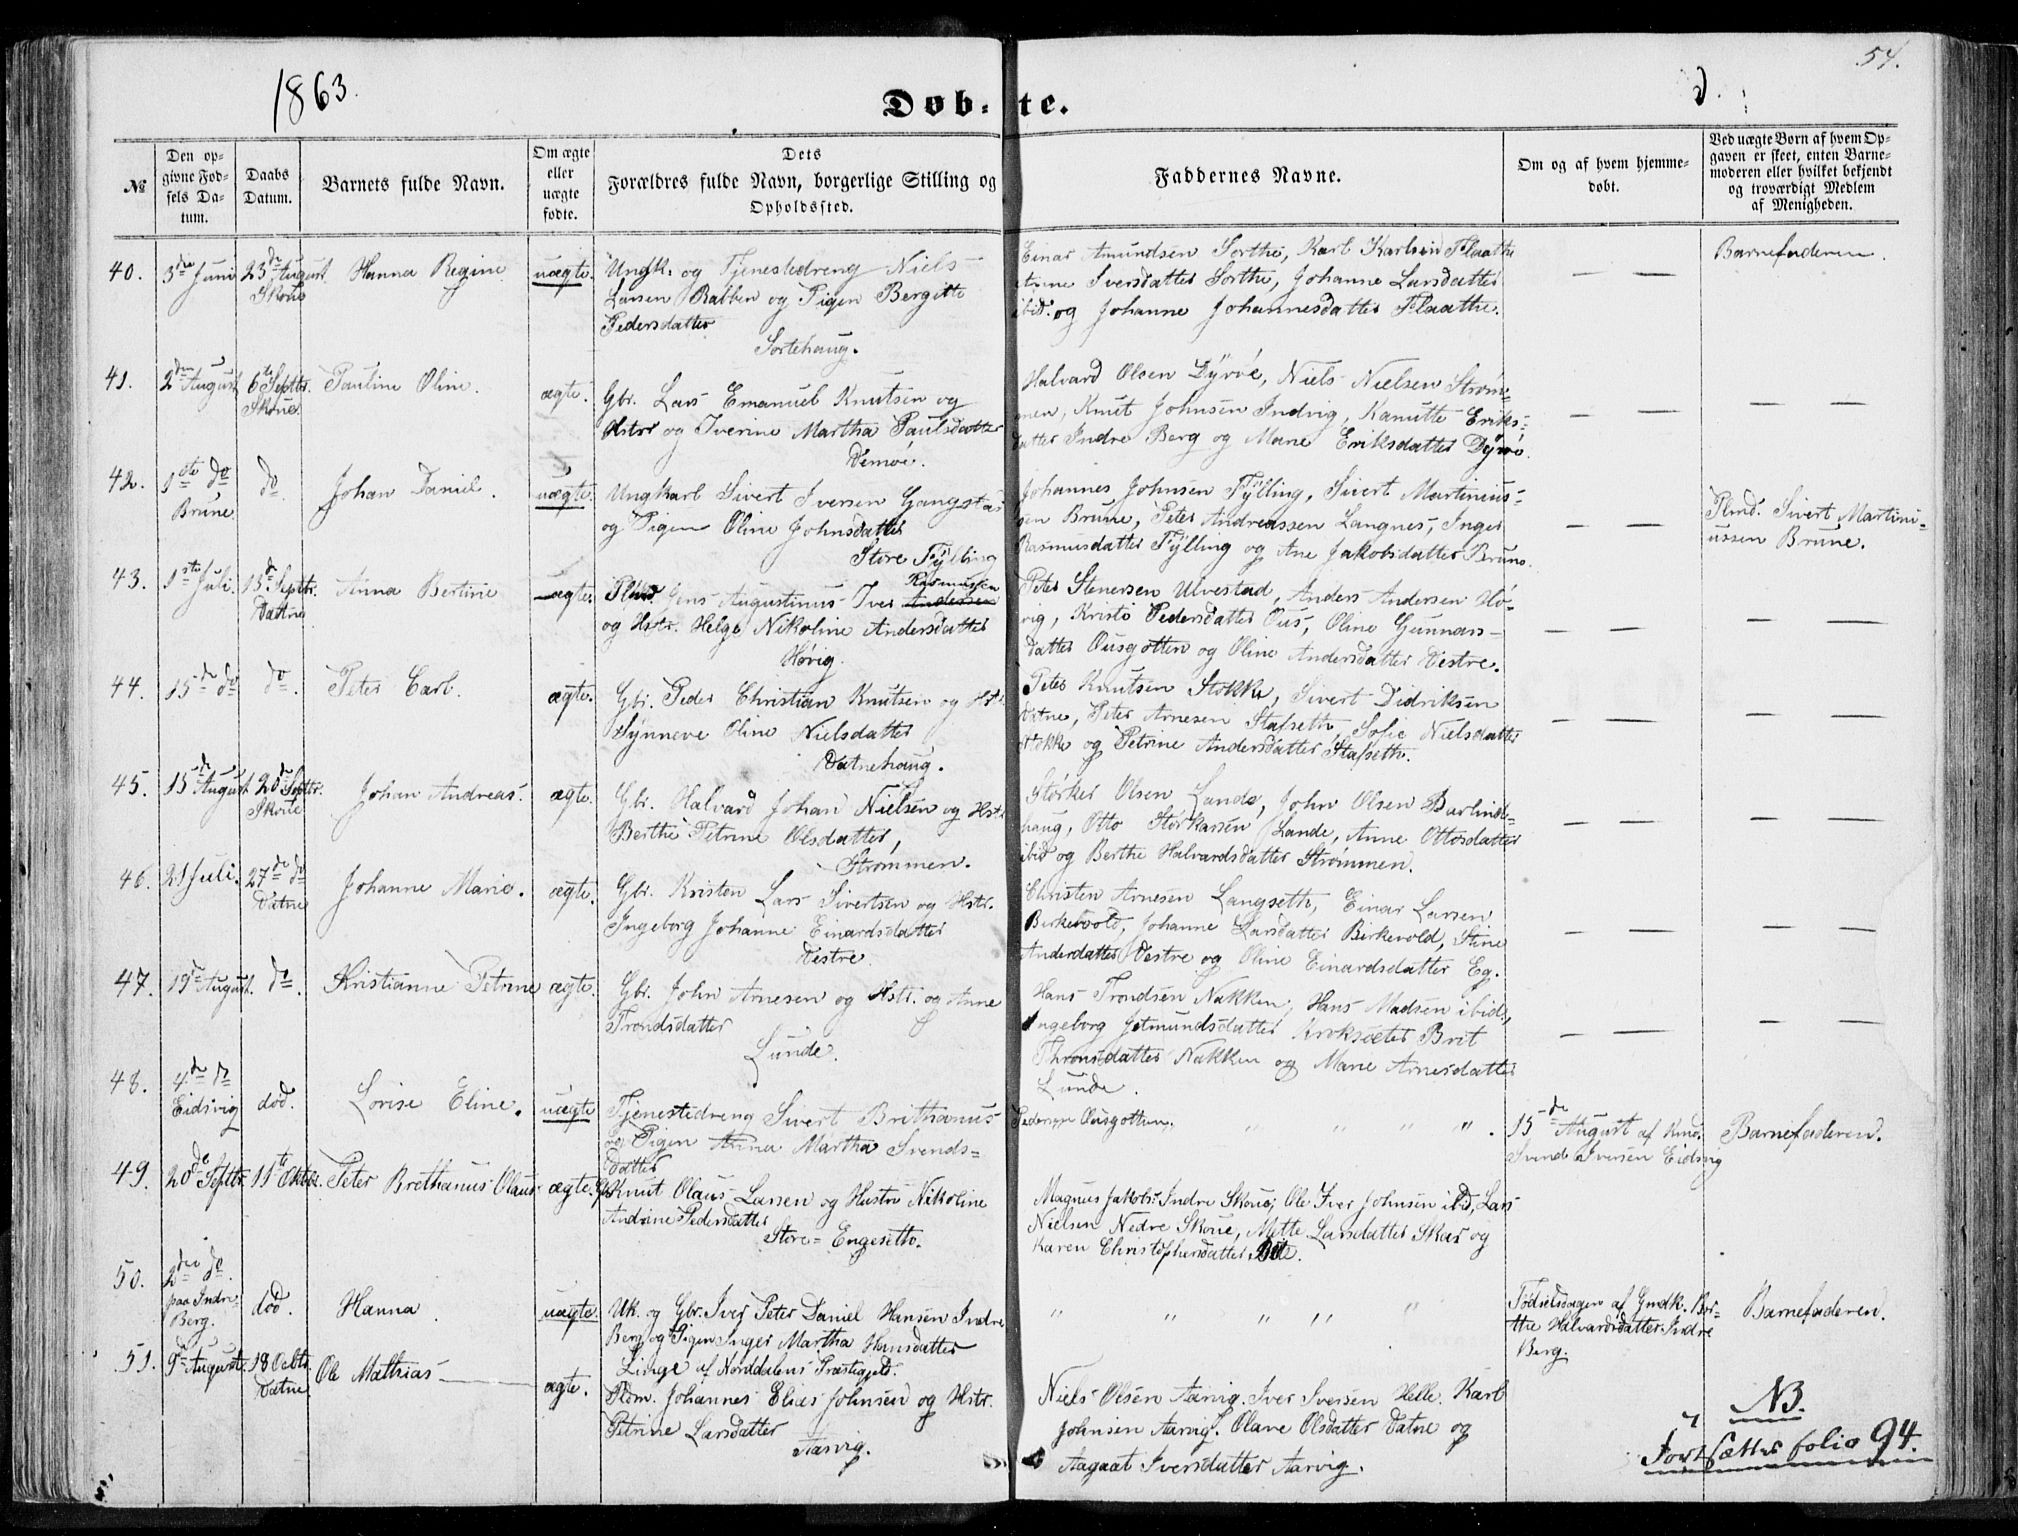 1863.
54.
Døb-te.
d.
№
Den op-
givne Fød-
sels Da-
tum.
Daabs
Datum.
Barnets fulde Navn.
Om ægte
eller
uægte
fødte.
Dets
Forældres fulde Navn, borgerlige Stilling og
Opholdssted.
Faddernes Navne.
Om og af hvem hjemme-
døbt.
Ved uægte Børn af hvem Op-
gaven er skeet, enten Barne-
moderen eller hvilket bekjendt
og troværdigt Medlem
af Menigheden.
40. 3die Juni 23de August Hanna Regine uægte. Ungk. og Tjenestedreng Niels
Skoue
Larsen Rabben og Pigen Bergitte
Pedersdatter
Sortehaug.
Einar Amundsen Sorthe, Karl Karlsen Flaathe
Anne Iversdatter Sorthe, Johanne Larsdatter
ibid. og Johanne Johannesdatter Flaathe.
— — Barnefaderen.
41. 2den August 6te Septbr. Pauline Oline. ægte. Gbr. Lars Emanuel Knutsen og
Skoue
Hstr og Iverine Martha Paulsdatter
Demoe.
Halvard Olsen Dyrøe, Niels Nielsen Strøm-
men, Knut Johnsen Indvig, Kanutte Eriks-
datter Indre Berg og Mane Eriksdatter Dyrøe.
— — — —
42. 1ste do do Johan Daniel. uægte. Ungkarl Sivert Iversen Gangstad
Brune
og Pigen Oline Johnsdatter
Store Fylling
Johannes Johnsen Fylling, Sivert Martinius-
sen Brune, Peter Andreassen Langnes, Inger
Rasmusdatter Fylling og Ane Jakobsdatter Brune.
— — Plmd. Sivert Martini-
ussen Brune.
43. 1ste Juli. 13de Septbr. Anna Bertine ægte. Plmd. Jens Augustinus Iver Andersen
Rasmussen
Datne
og Hstr. Helge Nikoline Andersdatter
Høvig.
Peter Stenersen Ulvestad, Anders Andersen Hø-
vig, Kristi Pedersdatter Ous, Oline Gunnars-
datter Ousgotten og Oline Andersdatter Vestre.
— — — —
44. 15de do do. Peter Carl. ægte. Gbr. Peder Christian Knutsen og Hstr
Synneve Oline Nielsdatter
Datnehaug.
Peter Knutsen Stokke, Sivert Didriksen
Datne, Peter Arnesen Stafseth, Sofie Nielsdatter
Stokke og Petrine Andersdatter Stafseth.
— — — —
45. 15de August 20de Septbr. Johan Andreas. ægte. Gbr. Halvard Johan Nielsen og Hstr
Skoue
Berthe Petrine Olsdatter,
Strømmen.
Størker Olsen Lande, John Olsen Barlind-
haug, Otto Størkersen Lande, Anne Ottosdatter
ibid og Berthe Halvardsdatter Strømmen.
— — — —
46. 21 Juli. 27de do Johanne Marie. ægte. Gbr. Kristen Lars Sivertsen og Hstr.
Datne
Ingeborg Johanne Einardsdatter
Vestre.
Christen Arnesen Langseth, Einar Larsen
Birkevold, Johanne Larsdatter Birkevold, Stine
Andersdatter Vestre og Oline Einardsdatter Eg.
— — — —
47. 19de August. do. Kristianne Petrine ægte. Gbr. John Arnesen og Hstr. og Anne
Trondsdatter
Lunde.
Hans Trondsen Nakken, Hans Madsen ibid.,
Ingeborg Jetmundsdatter Kroksæter Brit
Thronsdatter Nakken og Mane Arnesdatter
Lunde.
— — — —
48. 4de do død. Lovise Eline. uægte Tjenestedreng Sivert Brithanus
Eidsvig
og Pigen Anna Martha Svends-
datter
Pedersen Ousgotten. " " " " .
15de August af Kmd.
Svend Iversen Eidsvig
Barnefaderen.
49. 20de Septbr. 11te Oktbr. Peter Brethanus Olaus ægte. Gbr Knut Olaus Larsen og Hustru Nikoline
Andrine Pedersdatter
Store-Engesetth.
Magnus Jakobs. Indre Skoue, Ole Iver Johnsen ibd, Lars
Nielsen Nedre Skoue, Mette Larsdatter Skar og
Karen Christophersdatter
50. 2den do. død. Hanna. uægte. Uk. og Gbr. Iver Peter Daniel Hansen Indre
paa Indre
Berg.
Berg og Pigen Inger Martha Hansdatter
Linge af Norddalens Præstegjeld.
" " " " "
Fødselsdagen af Gmdk. Ber-
the Halvardsdatter Indre
Berg.
Barnefaderen.
51. 9de August. 18 Octbr. Ole Mathias ægte. Pldm. Johannes Elias Johnsen og Hstr.
Datne
Petrine Larsdatter
Aarvig.
Niels Olsen Aarvig. Iver Iversen Helle. Karl
Johnsen Aarvig. Olave Olsdatter Datne og
Aagaat Iversdatter Aarvig.
NB.
Fortsættes folio 94.